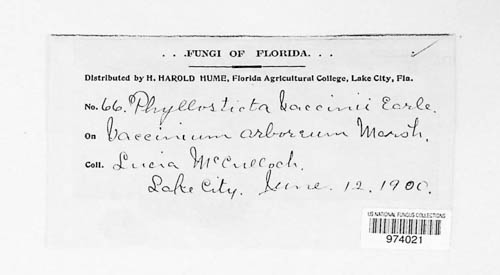 . . .FUNGI OF FLORIDA. . .
Distributed by H. HAROLD HUME, Florida Agricultural College, Lake City, Fla.
No. 66. Phyllosticta Vaccinii Earle.
On Vaccinium arboreum Marsh.
Coll. Lucia McCulloch.
Lake City. June. 12. 1900.
US NATIONAL FUNGUS COLLECTIONS
974021